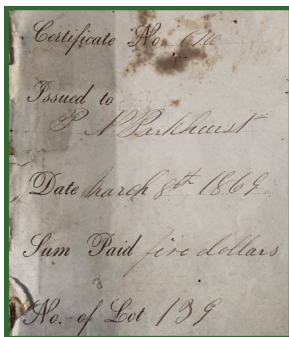 Certificate No. One
Issued to
P N Parkhurst
Date March 8th 1869
Sum Paid five dollars
No. of Lot 139